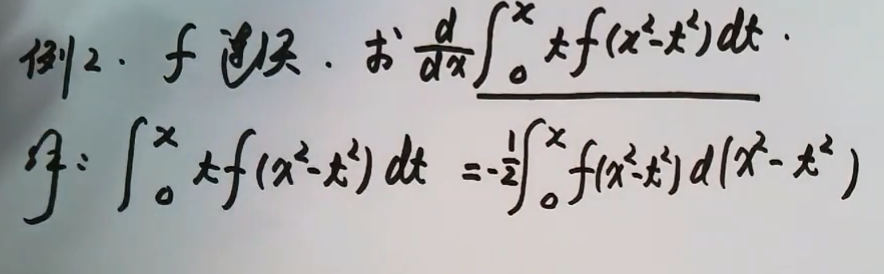 例2. f 连续. 求 d/dx ∫₀ˣ t f(x²-t²) dt.
解: ∫₀ˣ t f(x²-t²) dt = -1/2 ∫₀ˣ f(x²-t²) d(x²-t²)